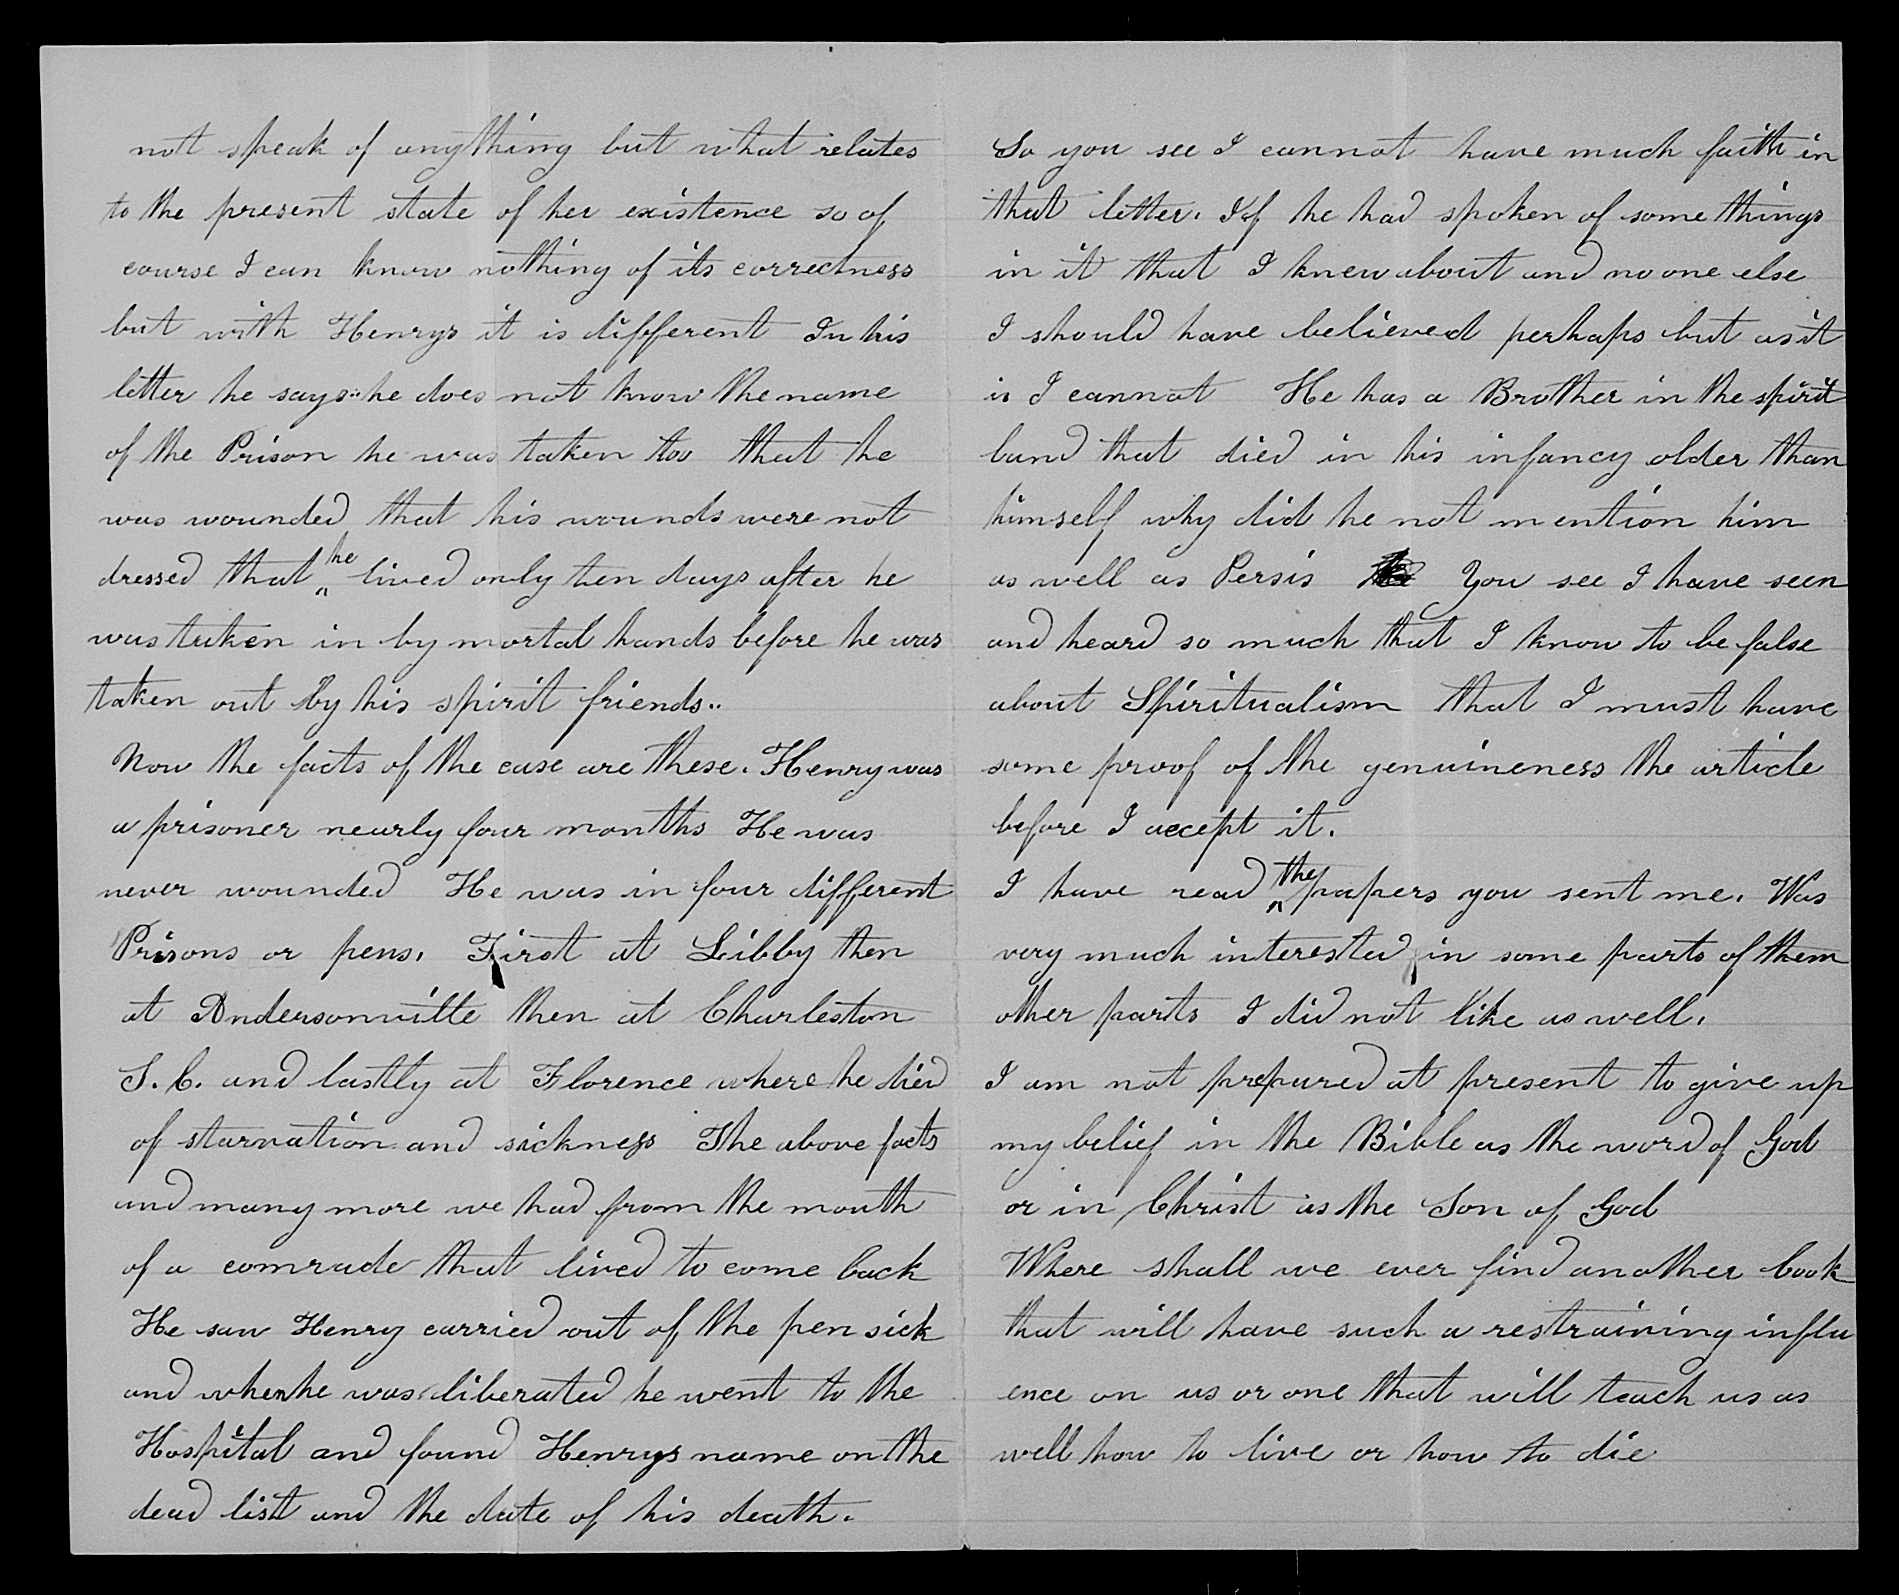 not speak of anything but what relates
to the present state of her existence so of
course I can know nothing of its correctness
but with Henrys it is different In his
letter he says he does not know the name
of the Prison he was taken too that he
was wounded that his wounds were not
dressed that he lived only ten days after he
was taken in by mortal hands before he was
taken out by his spirit friends..
Now the facts of the case are these. Henry was
a prisoner nearly four months He was
never wounded He was in four different
Prisons or pens. First at Libby then
at Andersonville then at Charleston
S. C. and lastly at Florence where he died
of starvation and sickness The above facts
and many more we had from the mouth
of a comrade that lived to come back
He saw Henry carried out of the pen sick
and when he was liberated he went to the
Hospital and found Henrys name on the
dead list and the date of his death.
So you see I cannot have much faith in
that letter. If he had spoken of some things
in it that I knew about and no one else
I should have believed perhaps but as it
is I cannot He has a Brother in the spirit
land that died in his infancy older than
himself why did he not mention him
as well as Persis You see I have seen
and heard so much that I know to be false
about Spiritualism that I must have
some proof of the genuineness the article
before I accept it.
I have read the papers you sent me. Was
very much interested in some parts of them
other parts I did not like as well.
I am not prepared at present to give up
my belief in the Bible as the word of God
or in Christ as the Son of God
Where shall we ever find another book
that will have such a restraining influ
ence on us or one that will teach us as
well how to live or how to die